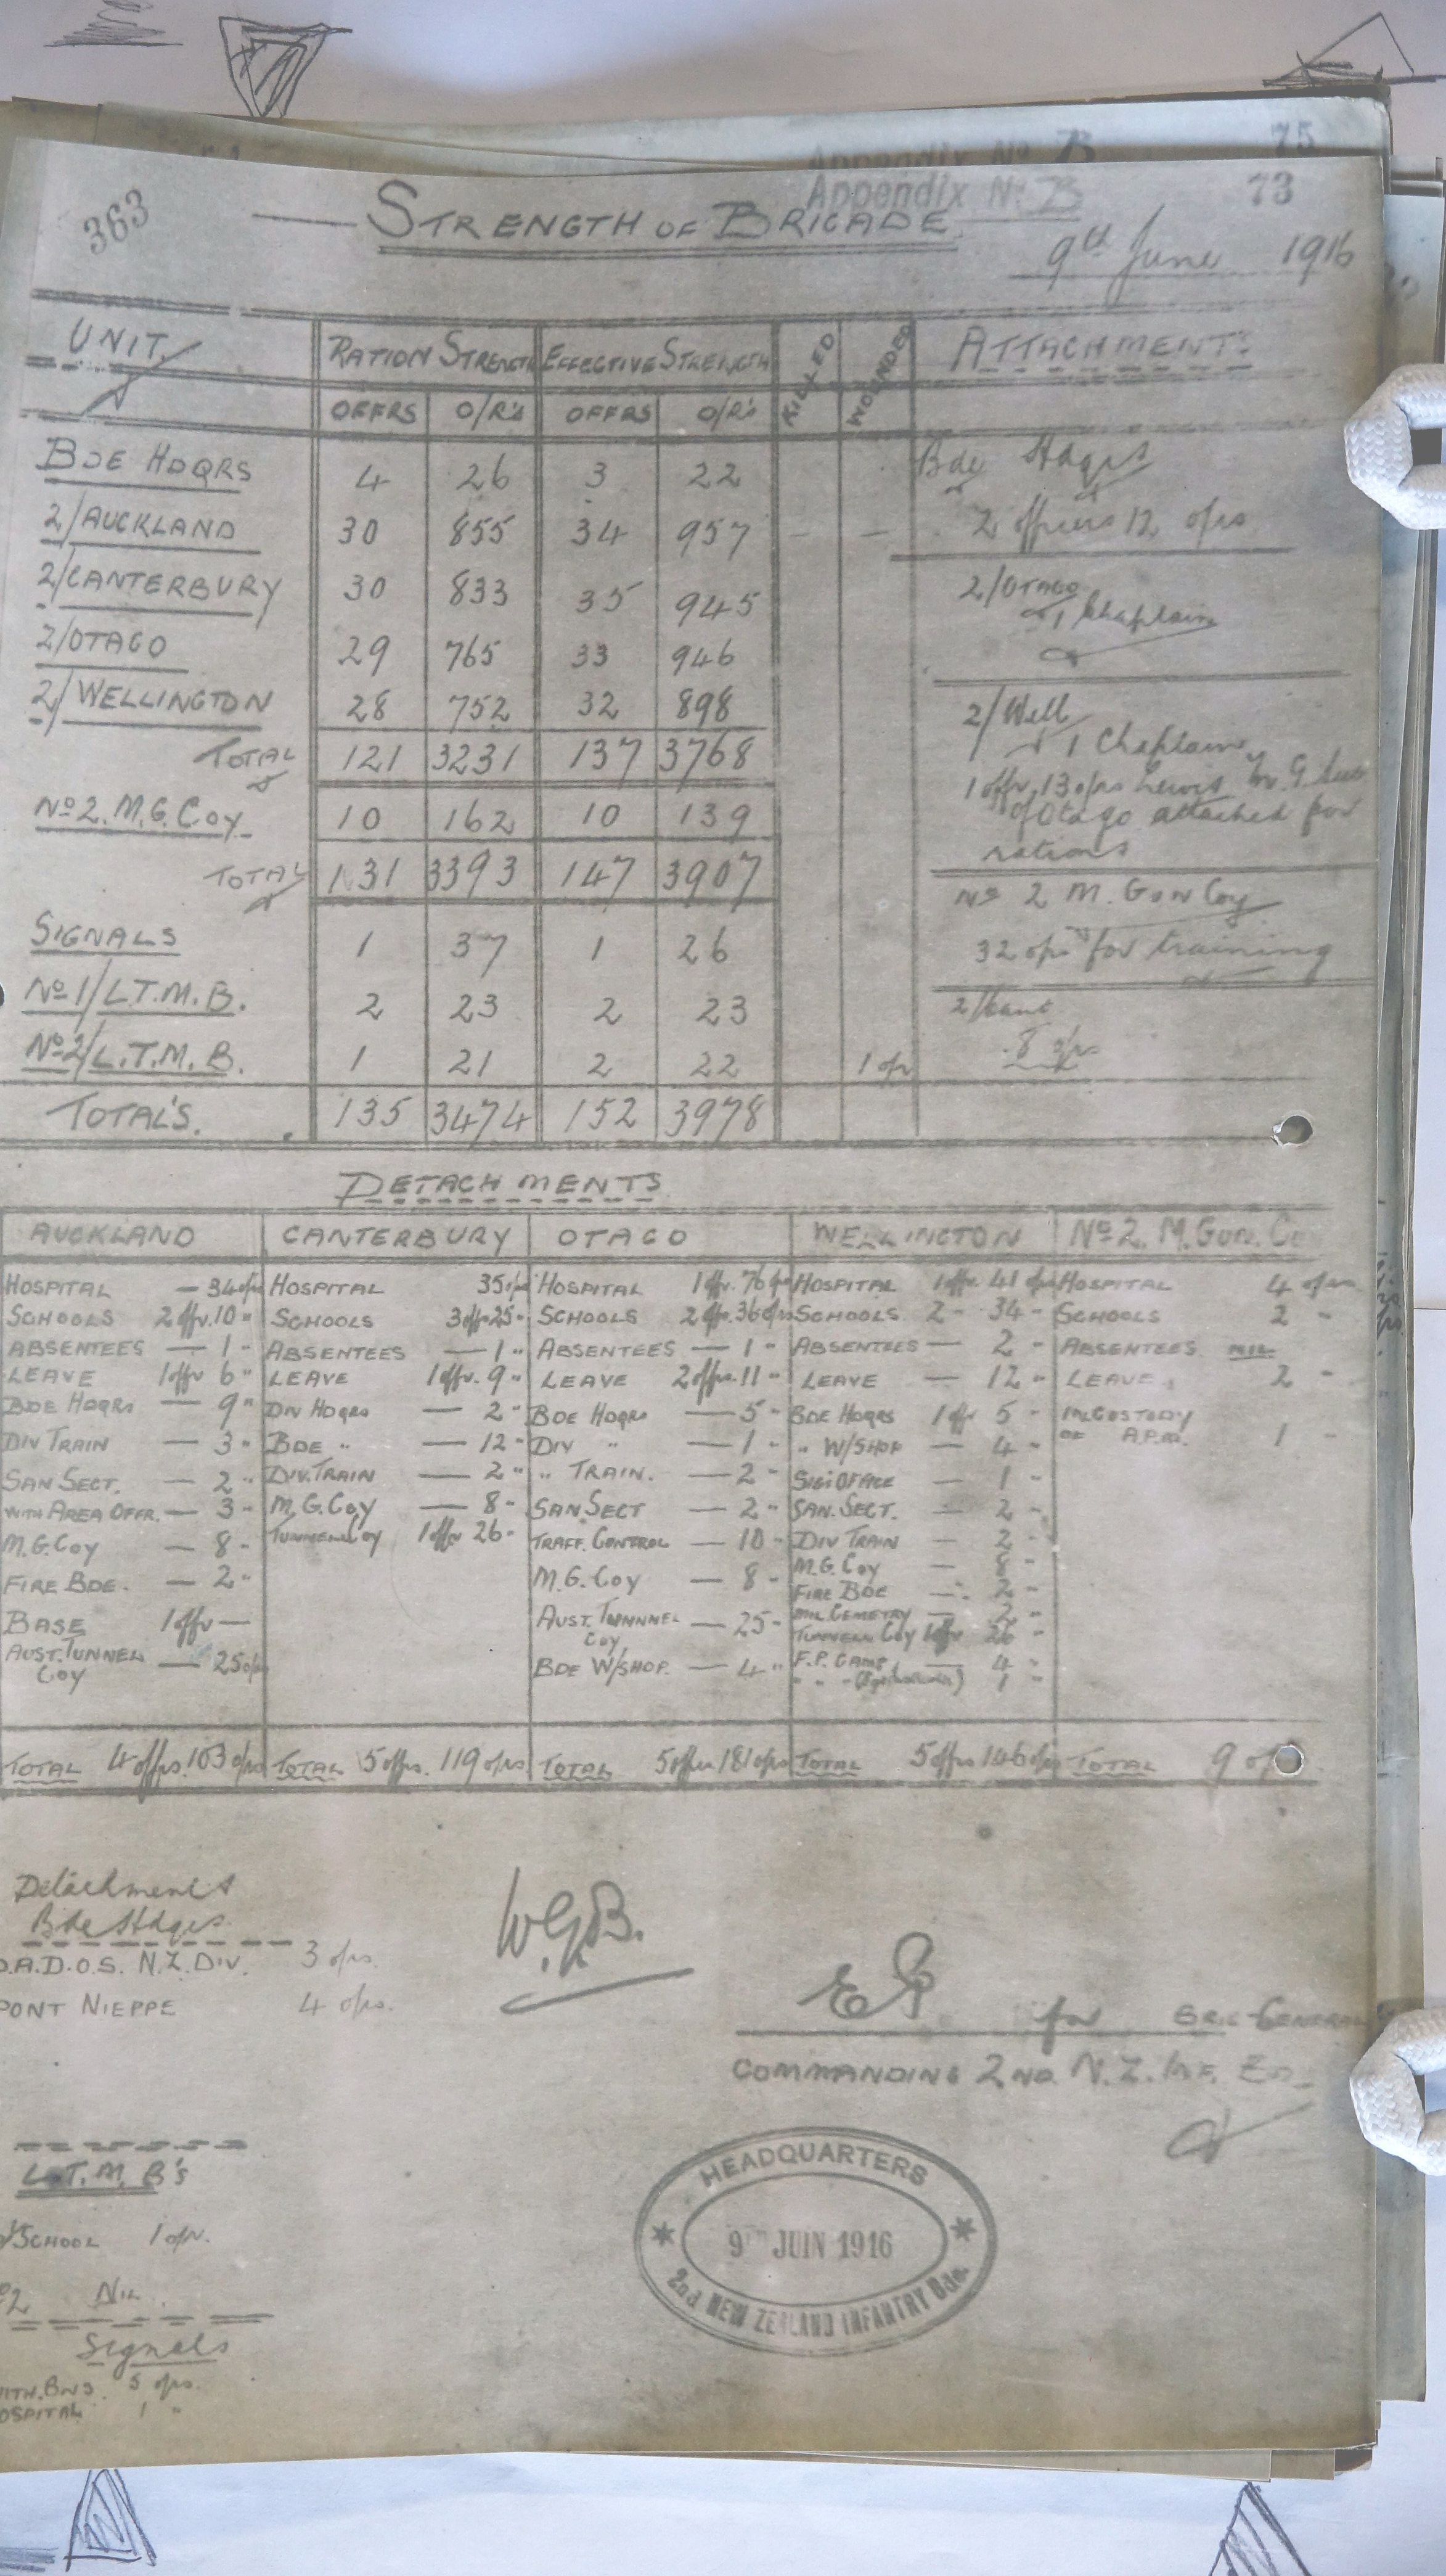 Appendix No B 75
Appendix No B 73
363
STRENGTH OF BRIGADE.
9th June 1916
UNIT. RATION STRENGTH EFFECTIVE STRENGTH KILLED WOUNDED ATTACHMENTS
OFFRS O/R's OFFRS O/R's
BDE HDQRS 4 26 3 22
2/AUCKLAND 30 855 34 957 — —
2/CANTERBURY 30 833 35 945
2/OTAGO 29 765 33 946
2/WELLINGTON 28 752 32 898
TOTAL 121 3231 137 3768
No 2. M.G. Coy. 10 162 10 139
TOTAL 131 3393 147 3907
SIGNALS 1 37 1 26
No 1/L.T.M.B. 2 23 2 23
No 2/L.T.M.B. 1 21 2 22 1 o/r
TOTAL'S. 135 3474 152 3978
Bde Hdqrs
2 officers 12 o/rs
2/OTAGO
1 Chaplain
2/Well
1 Chaplain
1 offr. 13 o/rs Lewis G
of Otago attached for
rations
No 2 M. Gun Coy
32 o/rs for training
2/Cant
8 o/rs
DETACHMENTS
AUCKLAND
HOSPITAL — 34 o/rs
SCHOOLS 2 offr. 10 "
ABSENTEES — 1 "
LEAVE 1 offr 6 "
BDE HDQRS — 9 "
DIV TRAIN — 3 "
SAN SECT. — 2 "
WITH AREA OFFR. — 3 "
M.G. Coy — 8 "
FIRE BDE. — 2 "
BASE 1 offr —
AUST. TUNNEL — 25 o/rs
Coy
TOTAL 4 offrs. 103 o/rs
CANTERBURY
HOSPITAL 35 o/rs
SCHOOLS 3 offr 25 "
ABSENTEES — 1 "
LEAVE 1 offr. 9 "
DIV HDQRS — 2 "
BDE " — 12 "
DIV. TRAIN — 2 "
M.G. Coy — 8 "
TUNNEL Coy 1 offr 26 "
TOTAL 5 offrs. 119 o/rs
OTAGO
HOSPITAL 1 offr. 76 o/rs
SCHOOLS 2 offr. 36 o/rs
ABSENTEES — 1 "
LEAVE 2 offrs. 11 "
BDE HDQRS — 5 "
DIV " — 1 "
" TRAIN. — 2 "
SAN SECT — 2 "
TRAFF. CONTROL — 10 "
M.G. Coy — 8 "
AUST. TUNNNEL — 25 "
Coy
BDE W/SHOP. — 4 "
TOTAL 5 offrs 181 o/rs
WELLINGTON
HOSPITAL 1 offr. 41 o/rs
SCHOOLS 2 " 34 "
ABSENTEES — 2 "
LEAVE — 12 "
BDE HDQRS 1 offr 5 "
" W/SHOP — 4 "
SIG: OFFICE — 1 "
SAN. SECT. — 2 "
DIV TRAIN — 2 "
M.G. Coy — 8 "
FIRE BDE — 2 "
MIL CEMETRY — 2 "
TUNNELL Coy 1 offr 26 "
F.P. CAMP — 4 "
" " 1 "
TOTAL 5 offrs 146 o/rs
No 2. M. GUN. Co
HOSPITAL 4 o/rs
SCHOOLS 2 "
ABSENTEES NIL
LEAVE 2 "
IN CUSTODY
OF A.P.M. 1 "
TOTAL 9 o/
Detachments
Bde Hdqrs.
D.A.D.O.S. N.Z. DIV. 3 o/rs.
PONT NIEPPE 4 o/rs.
W.G.B.
for BRIG-GENERAL
COMMANDING 2ND. N.Z. INF. BD
L.T.M.B's
SCHOOL 1 o/r.
2 NIL.
Signals
WITH. BNS. 5 o/rs.
HOSPITAL 1 "
HEADQUARTERS
9TH JUIN 1916
2nd NEW ZEALAND INFANTRY Bde.